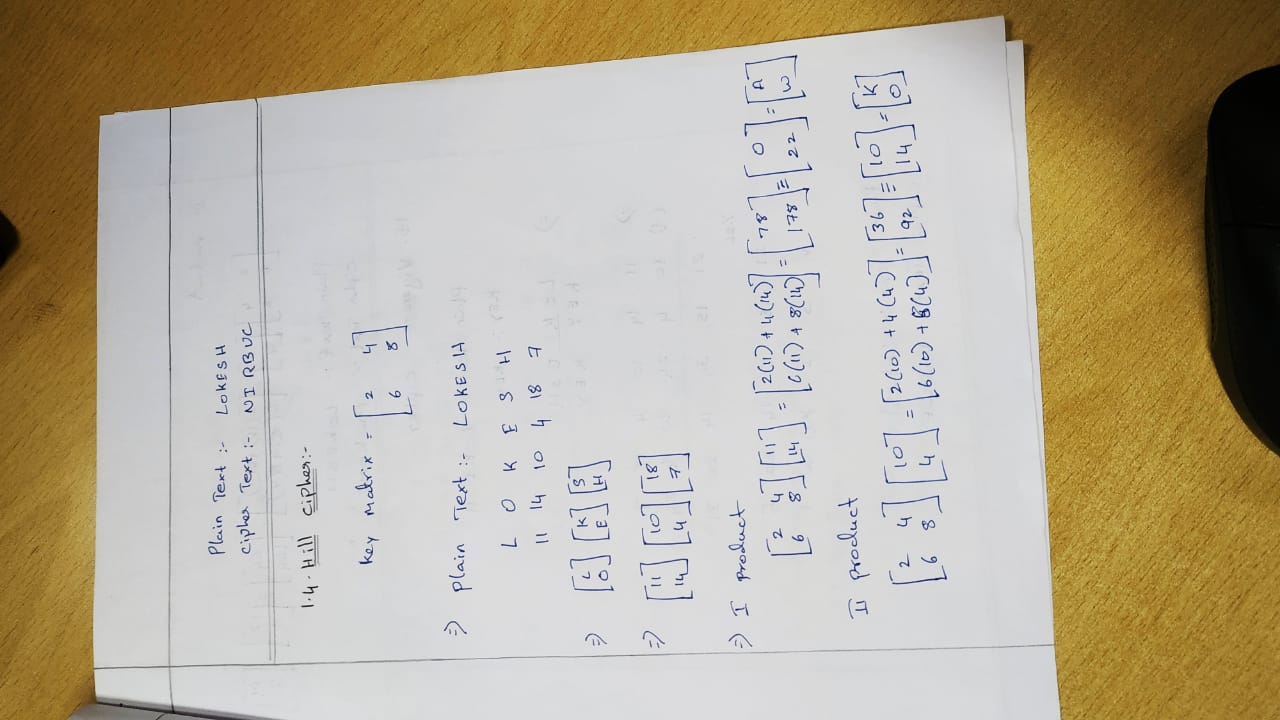 Plain Text :- LOKESH
Cipher Text :- NIRBUC
1.4. Hill Cipher:-
Key matrix = [2 4
6 8]
⇒ Plain Text :- LOKESH
L O K E S H
11 14 10 4 18 7
⇒ [L
O] [K
E] [S
H]
⇒ [11
14] [10
4] [18
7]
⇒ I product
[2 4
6 8] [11
14] = [2(11) + 4(14)
6(11) + 8(14)] = [78
178] ≡ [0
22] = [A
W]
II product
[2 4
6 8] [10
4] = [2(10) + 4(4)
6(10) + 8(4)] = [36
92] ≡ [10
14] = [K
O]